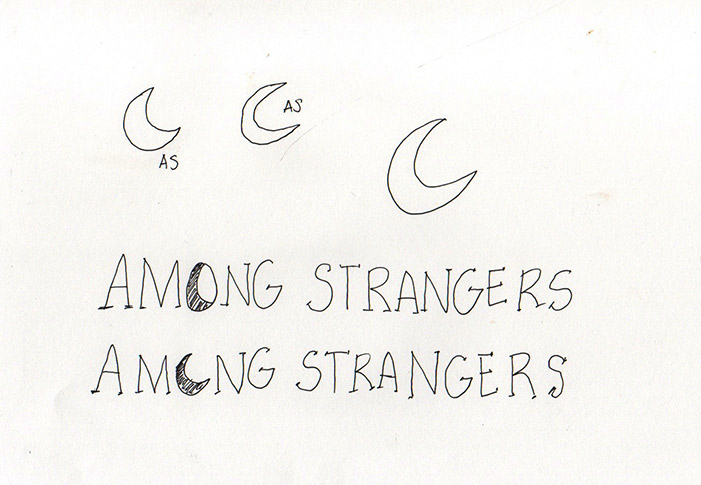 AS
AS
AMONG STRANGERS
AMONG STRANGERS